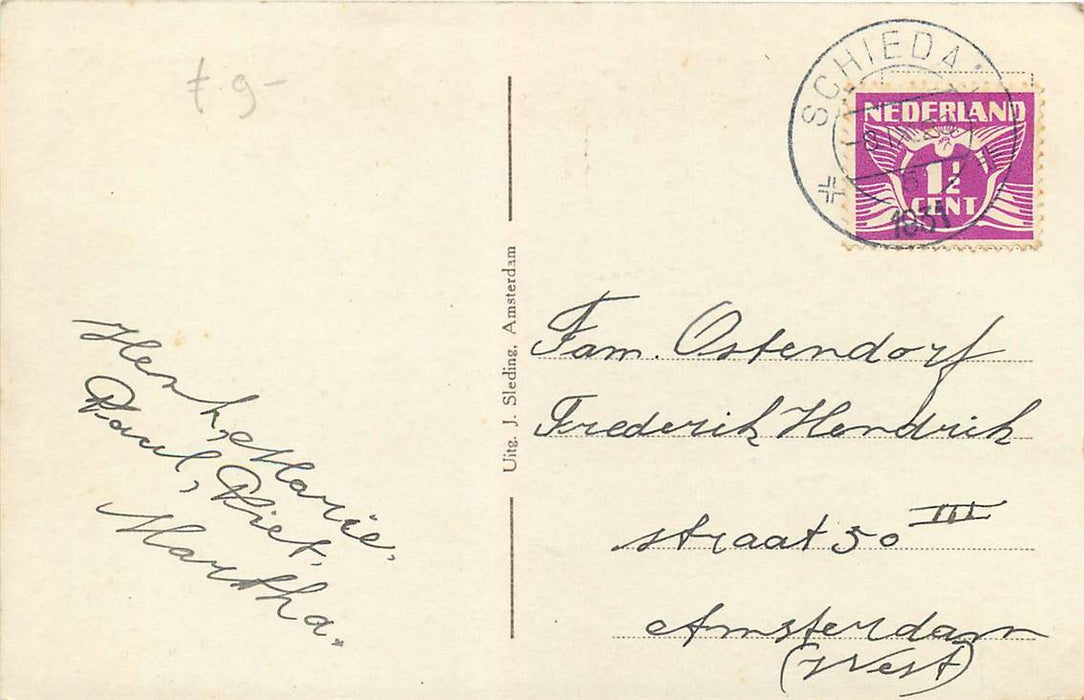 7.9-
SCHIEDA
1931
NEDERLAND
1½
CENT
Henk, Marie,
Paul, Piet,
Martha.
Uitg. J. Sleding, Amsterdam
Fam. Ostendorf
Frederik Hendrik
straat 50 III
Amsterdam
(West)